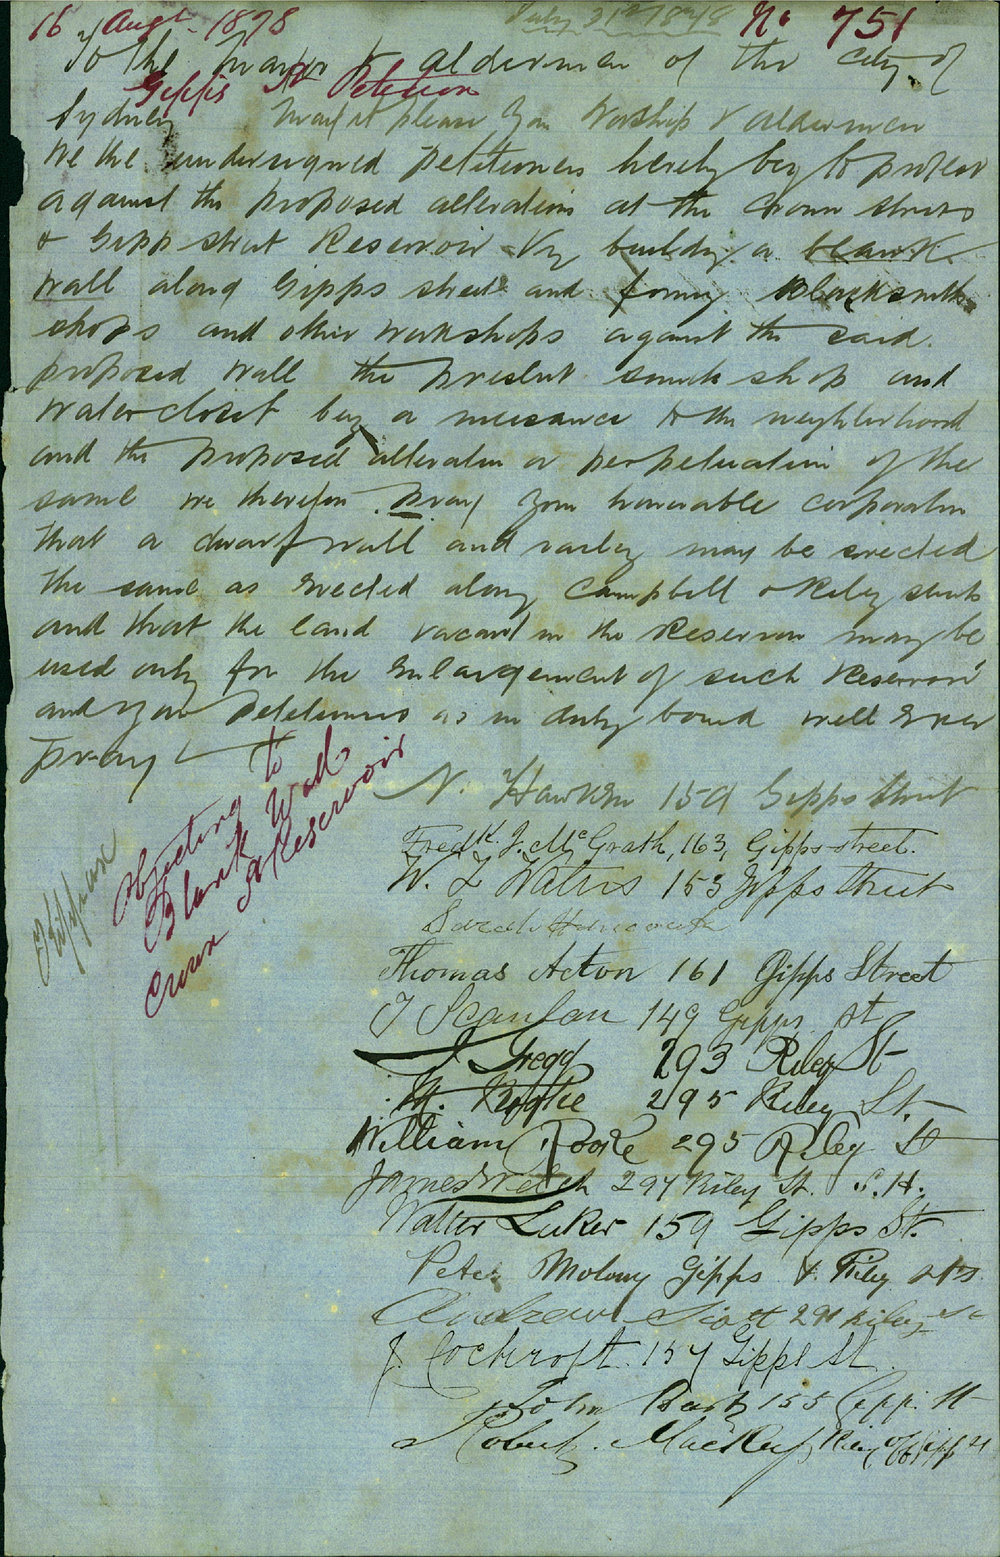 16 Augt 1878
July 31st 1878
No 751
To the Mayor & aldermen of the City of
Gipps St Petition
Sydney May it please your Worship & aldermen
We the undersigned petitioners hereby beg to protest
against the proposed alterations at the Crown street
& Gipps street Reservoir by building a blank
wall along Gipps street and forming Blacksmith
shops and other workshops against the said
proposed wall the present smith shop and
water closet being a nuisance to the neighborhood
and the proposed alteration a perpetuation of the
same we therefore pray your honorable corporation
that a dwarf wall and railing may be erected
the same as erected along Campbell & Riley streets
and that the land vacant in the Reservoir may be
used only for the enlargement of such Reservoir
and your petitioners as in duty bound will ever
pray
Objecting to
Blank Wall
Crown St Reservoir
N. 159 Gipps Street
Fredk. J. McGrath, 163, Gipps street.
W. Waters 153 Gipps Street
Sarah
Thomas Acton 161 Gipps Street
J Scanlan 149 Gipps St
J Gregg 293 Riley St
295 Riley St.
William Rooke 295 Riley St
James Welch 297 Riley St. S.H.
Walter Luker 159 Gipps St.
Peter Molony Gipps & Riley sts
Andrew Scott 291 Riley St
J. Cockroft 157 Gipps St
John 155 Gipps St
Robert